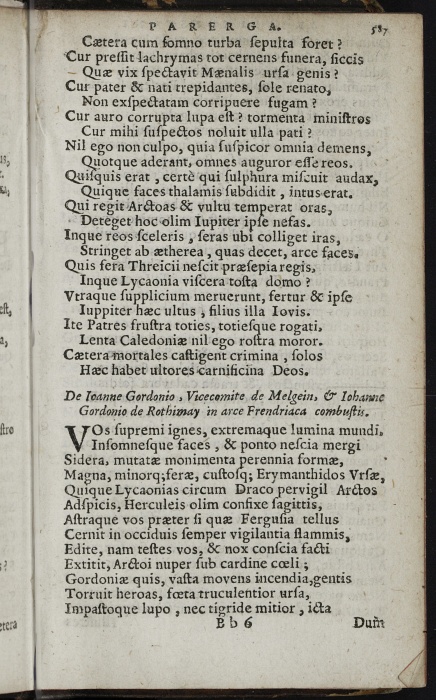 PARERGA. 587
Cætera cum ſomno turba ſepulta foret?
Cur preſſit lachrymas tot cernens funera, ſiccis
Quæ vix ſpectavit Mænalis urſa genis?
Cur pater & nati trepidantes, ſole renato,
Non exſpectatam corripuere fugam?
Cur auro corrupta lupa eſt? tormenta miniſtros
Cur mihi ſuſpectos noluit ulla pati?
Nil ego non culpo, quia ſuſpicor omnia demens,
Quotque aderant, omnes auguror eſſe reos.
Quiſquis erat, certè qui ſulphura miſcuit audax,
Quique faces thalamis ſubdidit, intus erat.
Qui regit Arctoas & vultu temperat oras,
Deteget hoc olim Iupiter ipſe nefas.
Inque reos ſceleris, ſeras ubi colliget iras,
Stringet ab ætherea, quas decet, arce faces.
Quis fera Threicii neſcit præſepia regis,
Inque Lycaonia viſcera toſta domo?
Vtraque ſupplicium meruerunt, fertur & ipſe
Iuppiter hæc ultus, filius illa Iovis.
Ite Patres fruſtra toties, totieſque rogati,
Lenta Caledoniæ nil ego roſtra moror.
Cætera mortales caſtigent crimina, ſolos
Hæc habet ultores carnificina Deos.
De Ioanne Gordonio, Vicecomite de Melgein, & Iohanne
Gordonio de Rothimay in arce Frendriaca combuſtis.
VOs ſupremi ignes, extremaque lumina mundi,
Inſomneſque faces, & ponto neſcia mergi
Sidera, mutatæ monimenta perennia formæ,
Magna, minorq; feræ, cuſtoſq; Erymanthidos Vrſæ,
Quique Lycaonias circum Draco pervigil Arctos
Adſpicis, Herculeis olim confixe ſagittis,
Aſtraque vos præter ſi quæ Ferguſia tellus
Cernit in occiduis ſemper vigilantia flammis,
Edite, nam teſtes vos, & nox conſcia facti
Extitit, Arctoi nuper ſub cardine cœli;
Gordoniæ quis, vaſta movens incendia, gentis
Torruit heroas, fœta truculentior urſa,
Impaſtoque lupo, nec tigride mitior, icta
Bb6 Dum